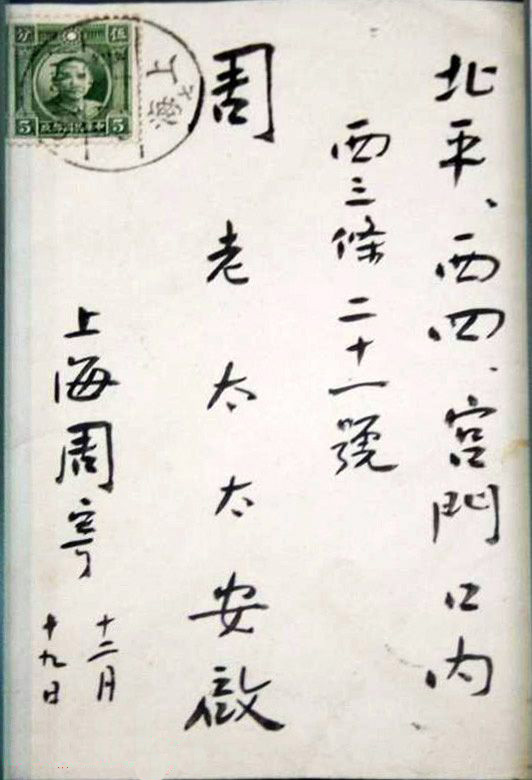 北平、西四、宮門口內
西三條二十一號
周老太太安啟
上海周寄
十二月
十九日
上海
伍分
5
5